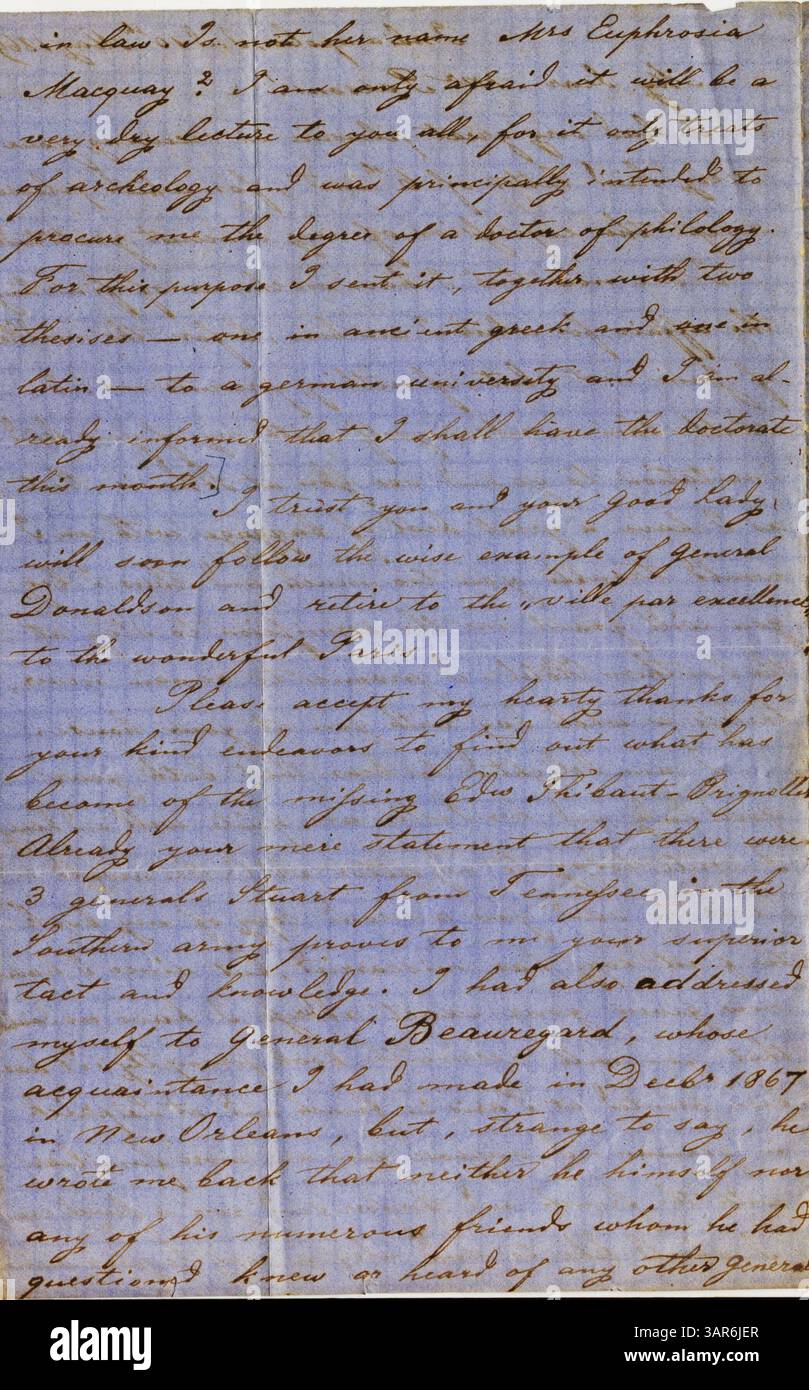 in law. Is not her name Mrs Euphrosia
Macquay? I am only afraid it will be a
very dry lecture to you all, for it only treats
of archeology and was principally intended to
procure me the degree of a doctor of philology.
For this purpose I sent it, together with two
thesises — one in ancient greek and one in
latin — to a german university and I am al-
ready informed that I shall have the doctorate
this month.]
I trust you and your good Lady,
will soon follow the wise example of General
Donaldson and retire to the „ville par excellence"
to the wonderful Paris.
Please accept my hearty thanks for
your kind endeavors to find out what has
become of the missing Edw Thibaut-
Already your mere statement that there were
3 generals Stuart from Tennessee in the
Southern army proves to me your superior
tact and knowledge. I had also addressed
myself to General Beauregard, whose
acquaintance I had made in Decbr 1867
in New Orleans, but, strange to say, he
wrote me back that neither he himself nor
any of his numerous friends whom he had
questioned knew or heard of any other general
alamy
Image ID: 3AR6JER
www.alamy.com